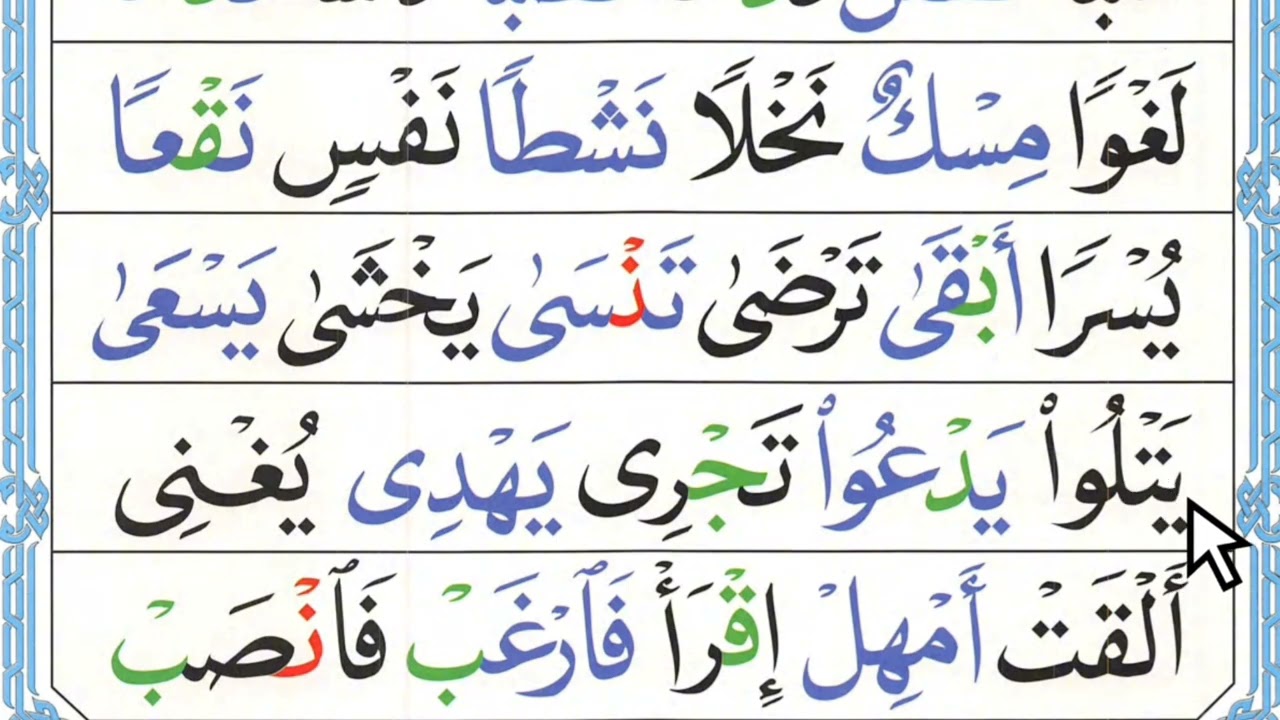 لَغْوًا مِسْكٌ نَخْلًا نَشْطًا نَفْسٍ نَقْعًا
يُسْرًا أَبْقَىٰ تَرْضَىٰ تَنْسَىٰ يَخْشَىٰ يَسْعَىٰ
يَتْلُواْ يَدْعُواْ تَجْرِى يَهْدِى يُغْنِى
أَلْقَتْ أَمْهِلْ إِقْرَأْ فَٱرْغَبْ فَٱنْصَبْ